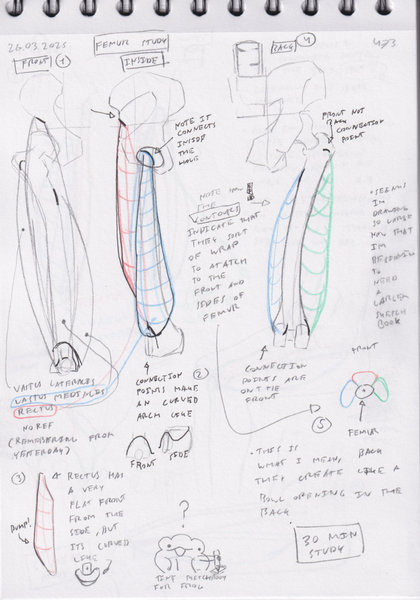 26.03.2025
FEMUR STUDY
FRONT 1
INSIDE
BACK 4
NOTE IT
CONNECTS
INSIDE
THE
FRONT NOT
BACK
CONNECTION
POINT
NOTE HOW
THE
CONTOURS
INDICATE THAT
THEY SORT
OF WRAP
TO ATATCH
TO THE
FRONT AND
SIDES OF
FEMUR
• SEEMS
IM
DRAWING
SO LARGE
NOW THAT
IM
BEGINNING
TO
NEED
A
LARGER
SKETCH
BOOK
VASTUS LATERALES
VASTUS MEDIALES
RECTUS
NO REF
(REMEMBERING FROM
YESTERDAY)
CONNECTION 2
POINTS MAKE
AN CURVED
ARCH LIKE
FRONT SIDE
CONNECTION
POINTS ARE
ON THE
FRONT
FRONT
FEMUR
BACK
5
• THIS IS
WHAT I MEAN,
THEY CREATE LIKE A
BOWL OPENING IN THE
BACK
3
RECTUS HAS
A VERY
FLAT FRONT
FROM THE
SIDE, BUT
ITS CURVED
LIKE
BUMP!
?
TINY SKETCHBOOK
FOR FROG
30 MIN
STUDY